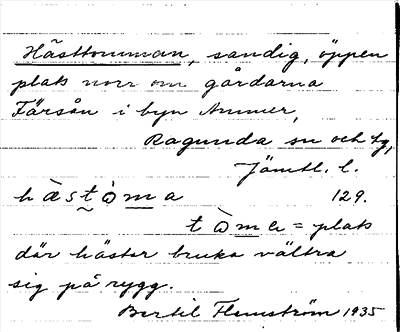 Hästtomman, sandig, öppen
plats norr om gårdarna
Färsån i byn Ammer,
Ragunda sn och tg,
Jämtl. l.
hæstò̱ma 129.
tò̱ma = plats
där hästar bruka vältra
sig på rygg.
Bertil Flemström 1935